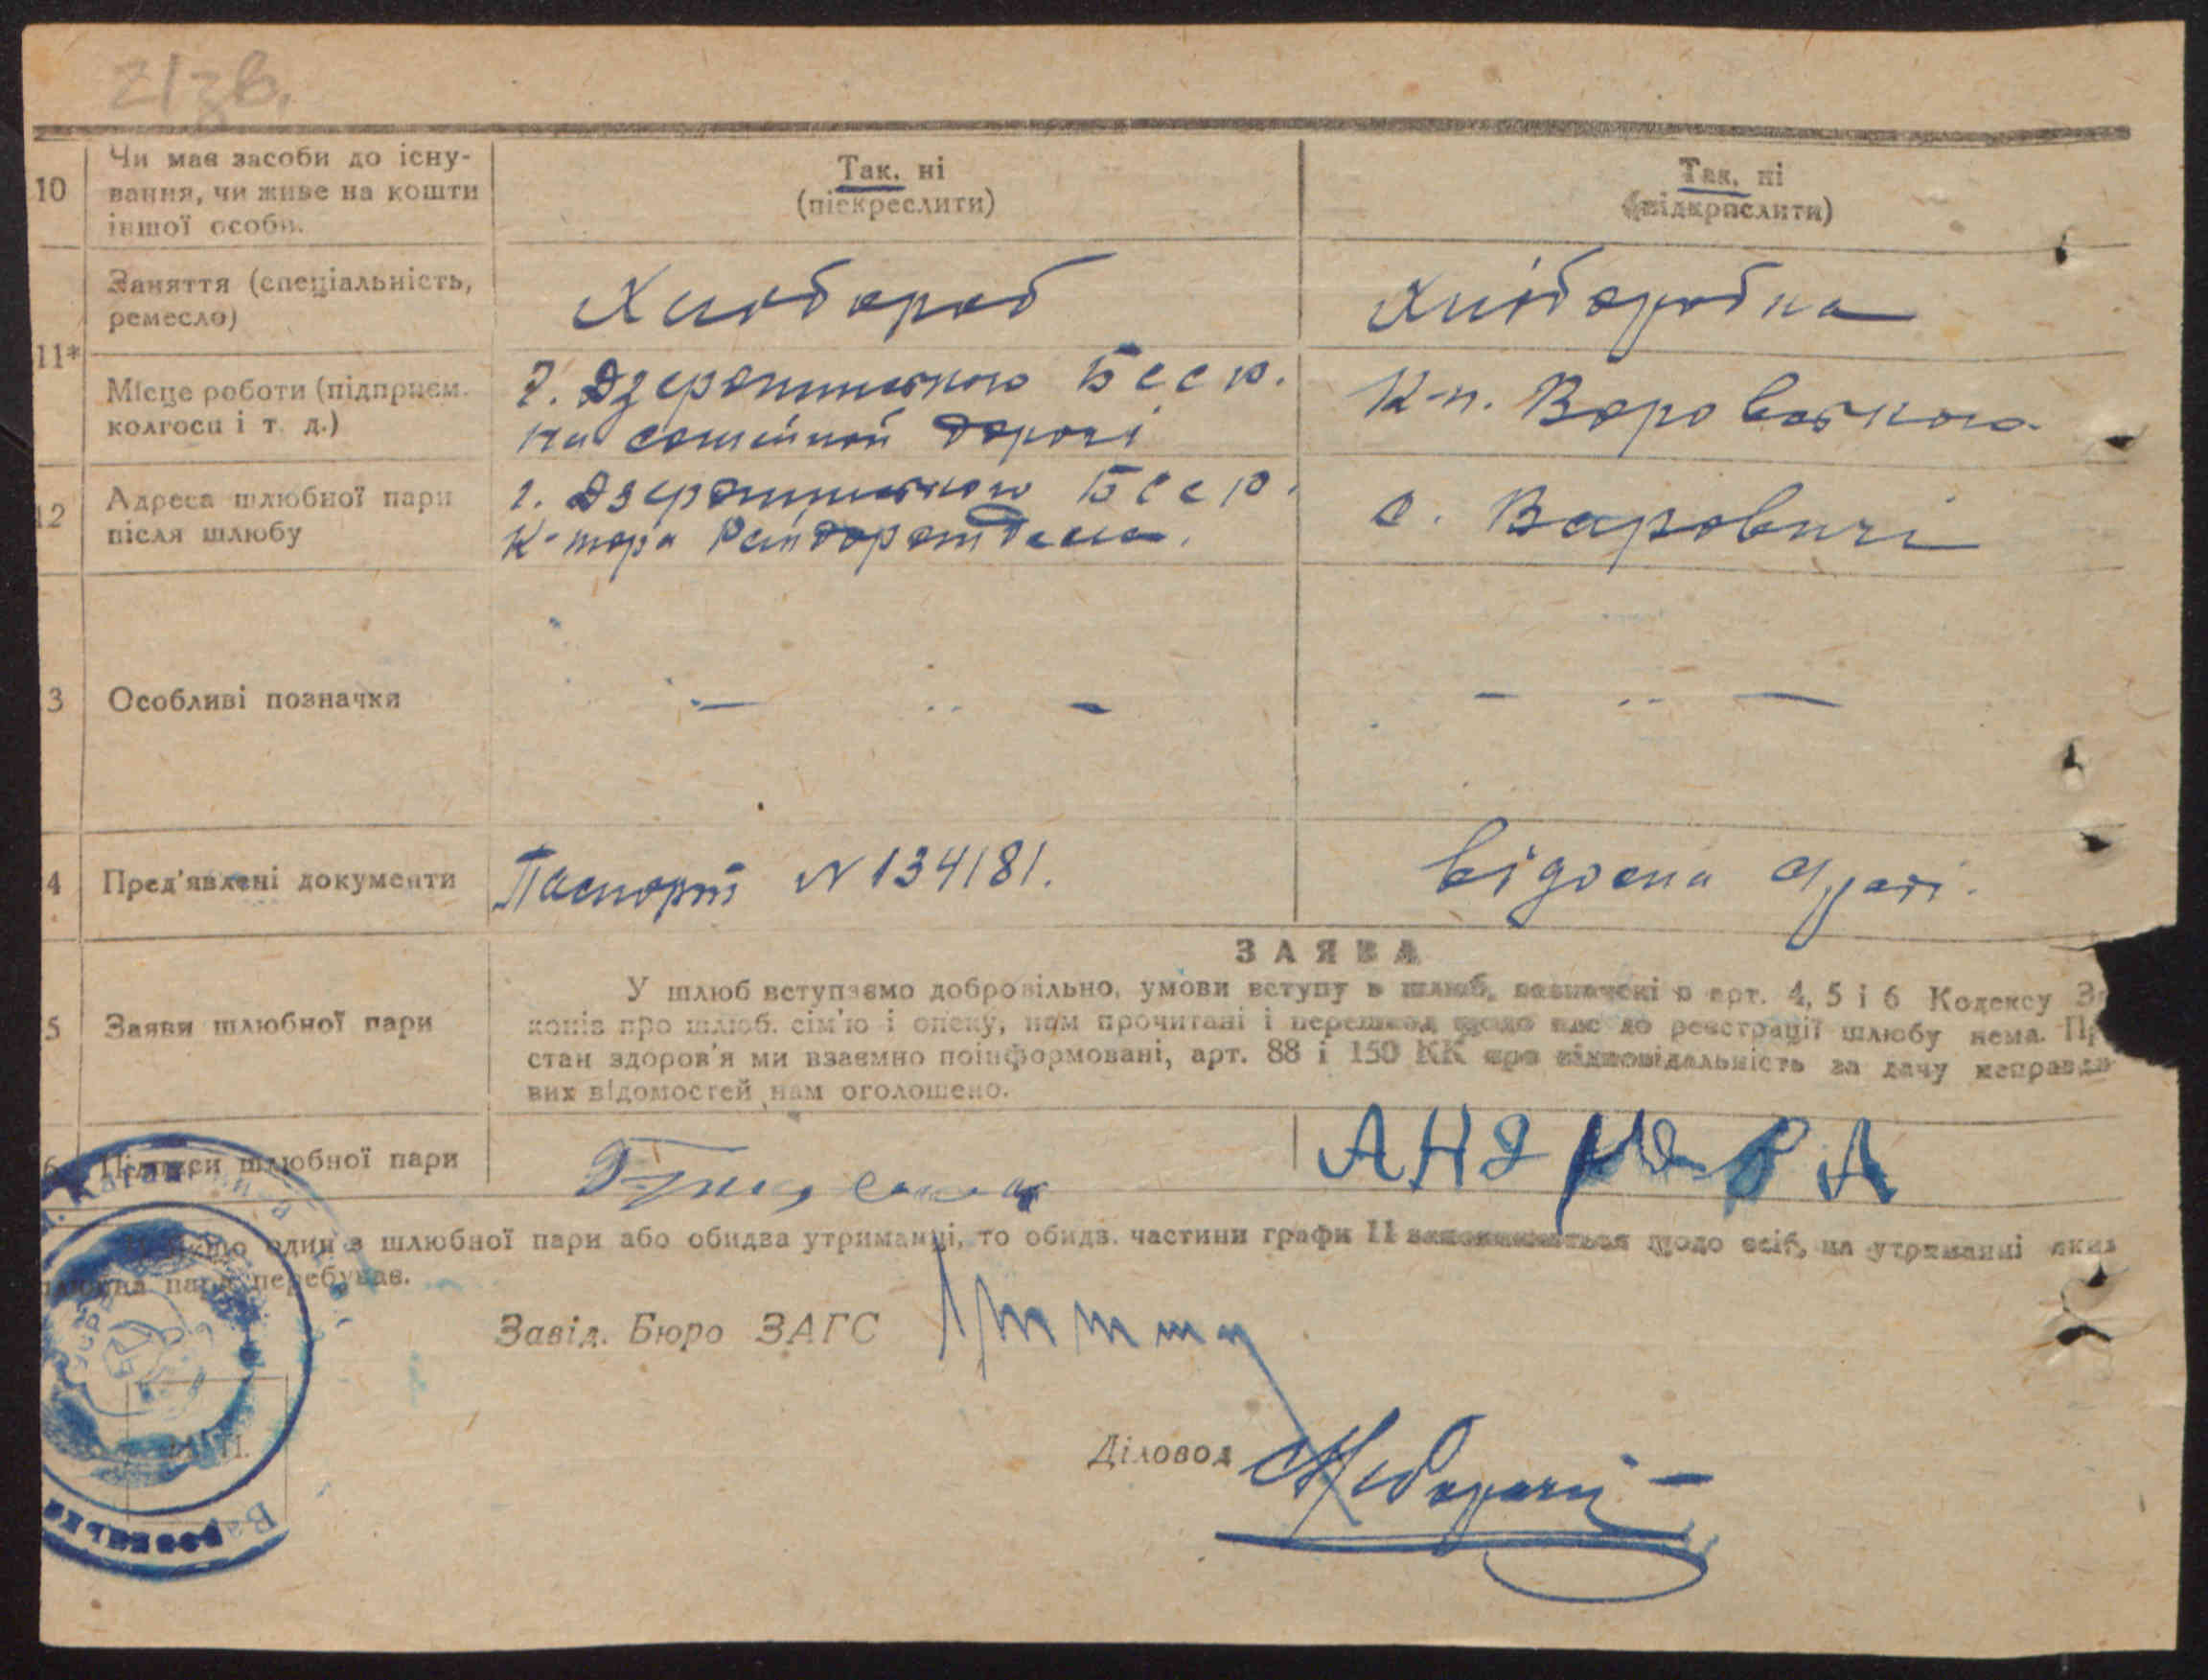 21зв.
10 Чи має засоби до існу-
вання, чи живе на кошти
іншої особи.
Так, ні
(підкреслити)
Так, ні
(підкреслити)
11* Заняття (спеціальність,
ремесло)
Хлібороб
Хліборобка
Місце роботи (підприєм.
колгосп і т. д.)
г. Дзержинського БССР.
на
дорозі
К-п. Воровського
12 Адреса шлюбної пари
після шлюбу
г. Дзержинського БССР.
К-тора
с. Варовичі
3 Особливі позначки
— „ —
— „ —
4 Пред'явлені документи
Паспорт N 134181.
5 Заяви шлюбної пари
ЗАЯВА
У шлюб вступаємо добровільно, умови вступу в шлюб, зазначені в арт. 4, 5 і 6 Кодексу За
конів про шлюб, сім'ю і опеку, нам прочитані і перешкод щодо нас до реєстрації шлюбу нема. Пр
стан здоров'я ми взаємно поінформовані, арт. 88 і 150 КК про відповідальність за дачу неправди
вих відомостей нам оголошено.
6 Підписи шлюбної пари
Якщо один з шлюбної пари або обидва утриманці, то обидв. частини графи 11 заповнюються щодо осіб, на утриманні яких
шлюбна пара перебуває.
Завід. Бюро ЗАГС
Діловод